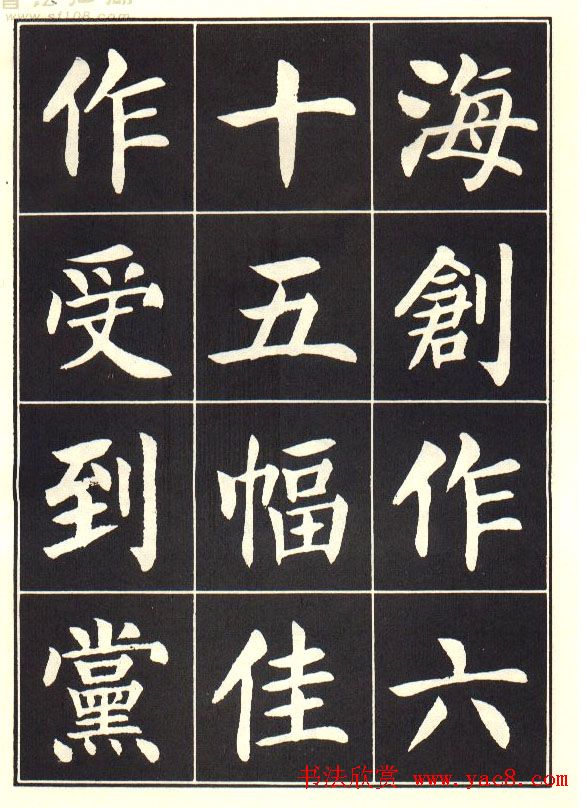 海創作六
十五幅佳
作受到黨
www.sf108.com
书法欣赏 www.yac8.com